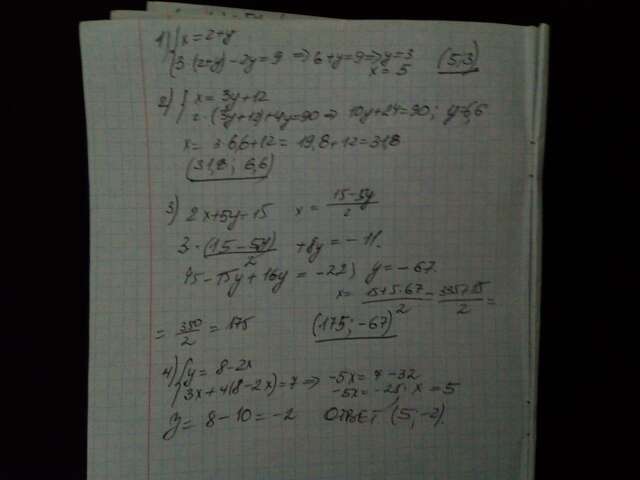 1) { x = 2+y
{ 3·(2+y) - 2y = 9 ⇒ 6+y = 9 ⇒ y = 3
x = 5 (5;3)
2) { x = 3y+12
2·(3y+12)+4y=90 ⇒ 10y+24=90; y=6,6
x = 3·6,6+12 = 19,8+12=31,8
(31,8; 6,6)
3) 2x+5y=15 x = (15-5y)/2
3·(15-5y)/2 +8y = -11.
45-15y+16y = -22) y=-67.
x = (15+5·67)/2 = (335+15)/2 =
= 350/2 = 175 (175; -67)
4) { y = 8-2x
{ 3x+4(8-2x)=7 ⇒ -5x = 7-32
-5x = -25· x = 5
y = 8-10 = -2 ОТВЕТ (5;-2).